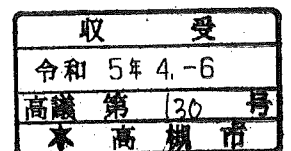 収受
令和 5年 4.-6
高議 第 130 号
高槻市